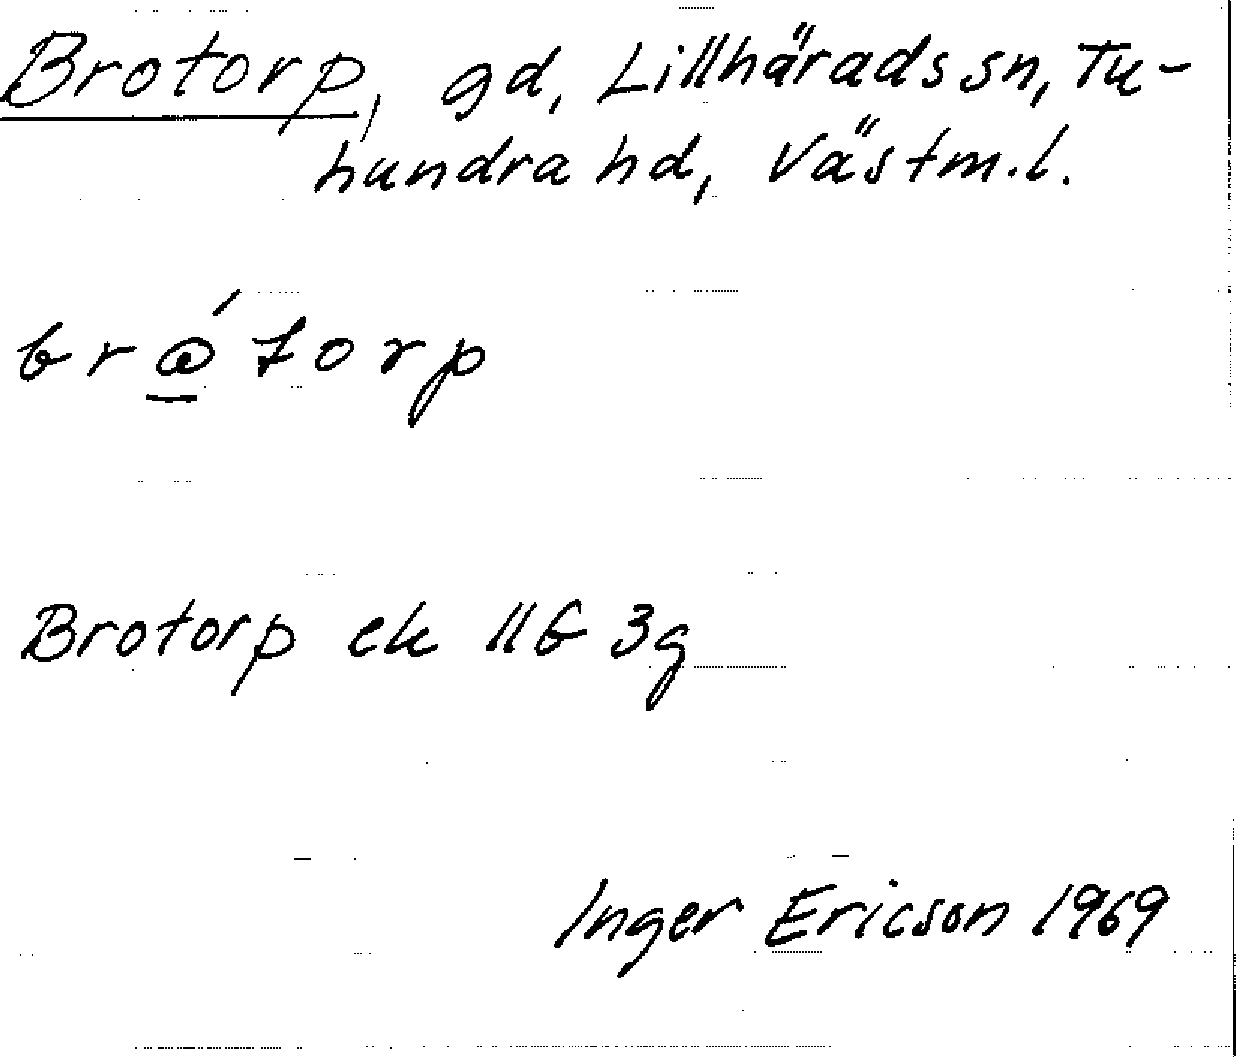 Brotorp, gd, Lillhärads sn, Tu-
hundra hd, Västm.l.
Brotorp ek 11G 3g
Inger Ericson 1969